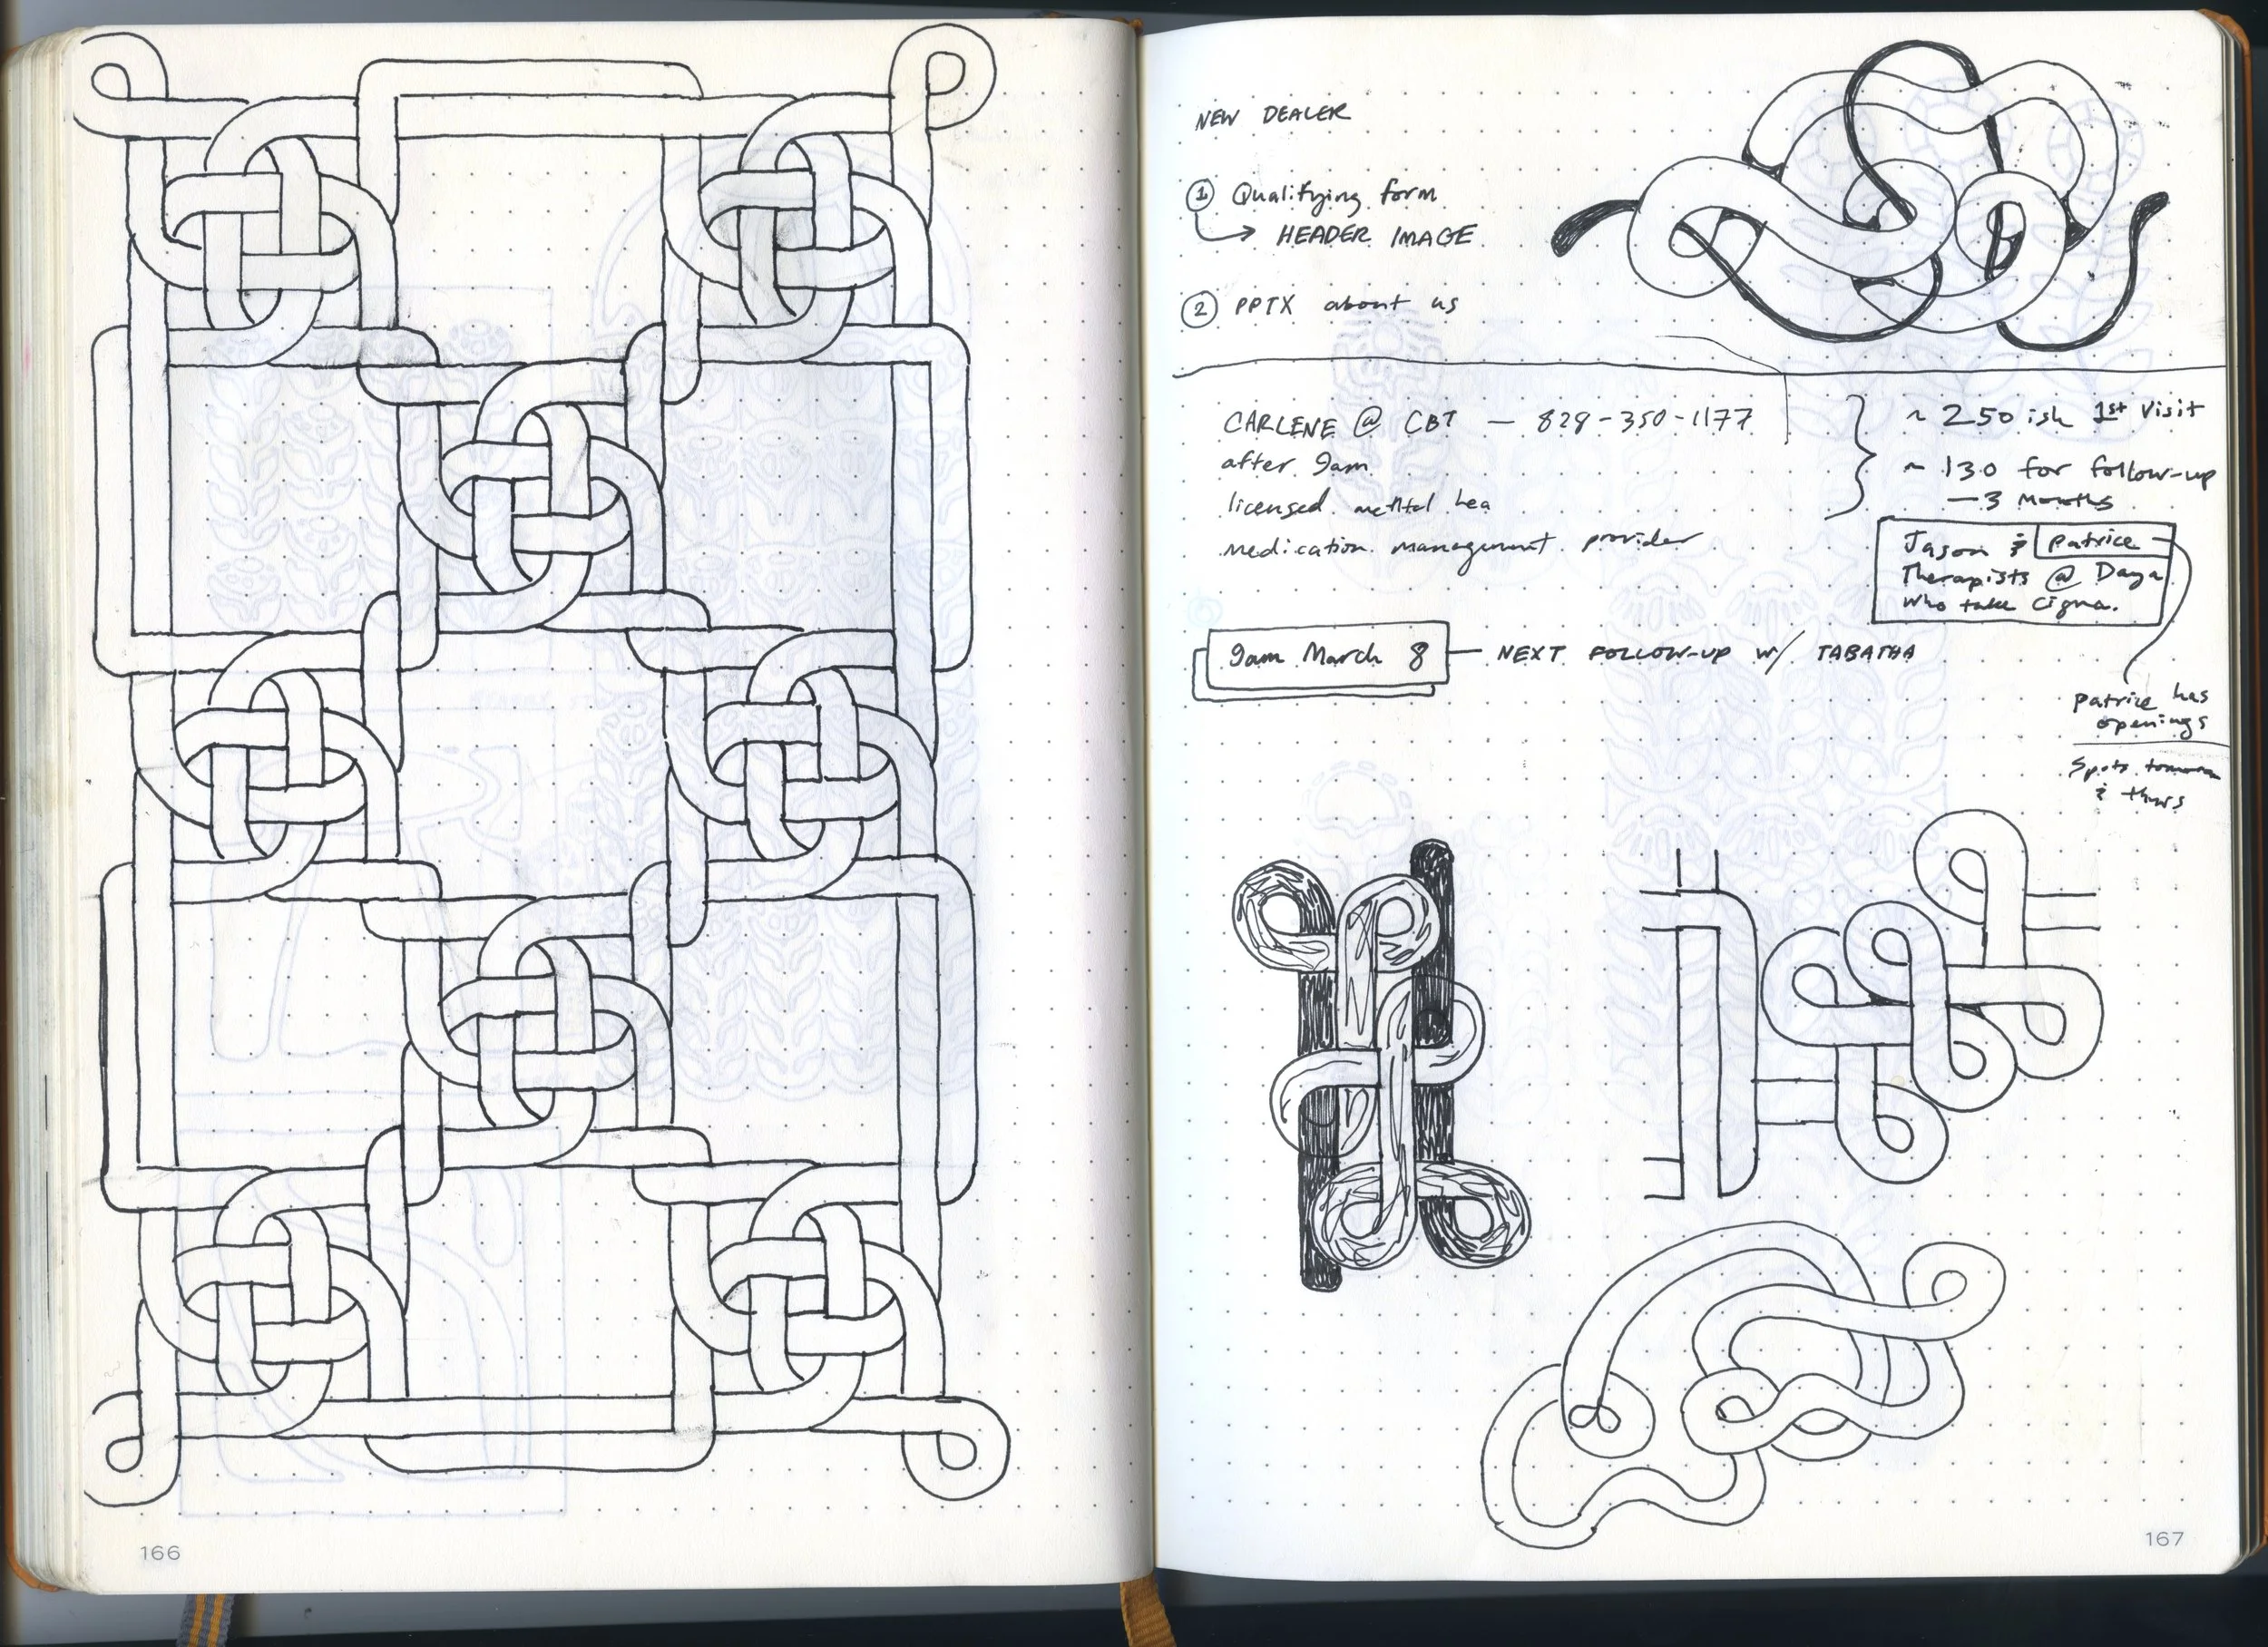 NEW DEALER
① Qualifying form
→ HEADER IMAGE
② PPTX about us
CARLENE @ CBT — 828-350-1177
after 9am
licensed mental hea
medication management provider
~ 250 ish 1st visit
~ 130 for follow-up
— 3 months
Jason & Patrice
Therapists @ Daya
who take cigna.
9am March 8 — NEXT FOLLOW-UP w/ TABATHA
patrice has
openings
Spots
& thurs
166
167